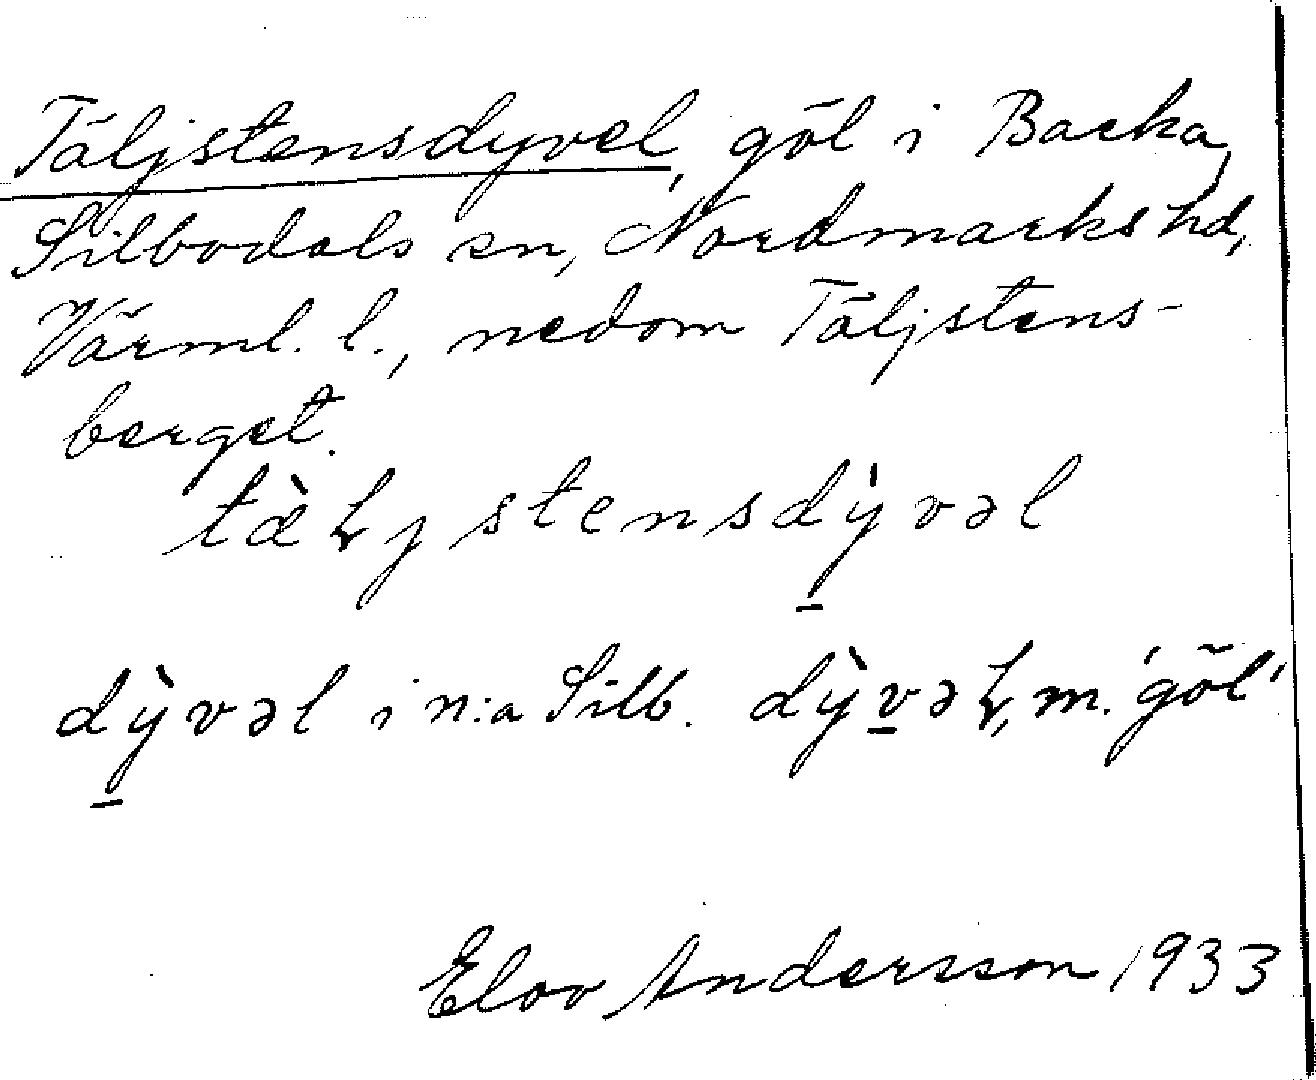 Täljstensdyvel, göl i Backa,
Silbodals sn, Nordmarks hd,
Värml. l., nedom Täljstens-
berget.
tæ̀ɫjstensdỳvəl
dỳvəl i n:a Silb. dỳvəɫ, m. 'göl'
Elov Andersson 1933